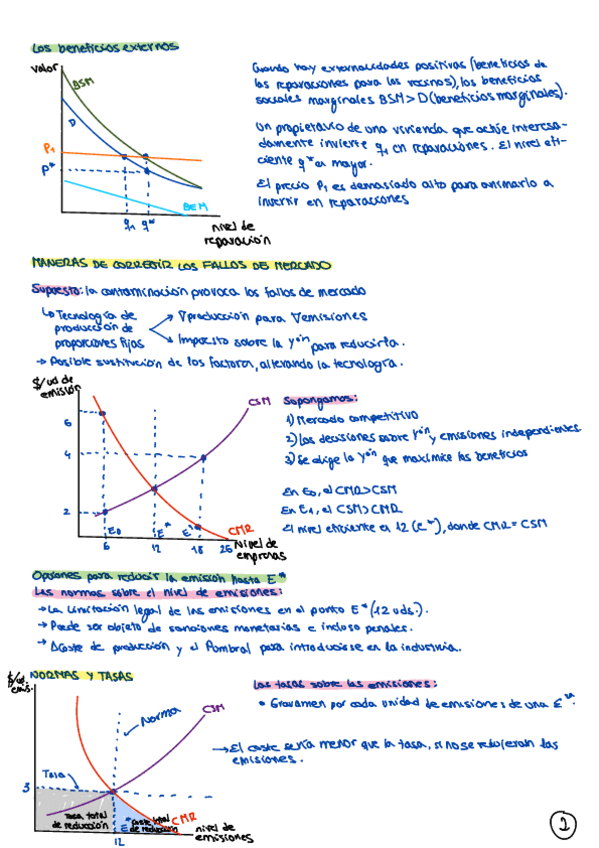 Los beneficios externos
valor
BSM
D
P1
P*
BEM
q1 q*
nivel de
reparación
Cuando hay externalidades positivas (beneficios de
las reparaciones para los vecinos), los beneficios
sociales marginales BSM > D (beneficios marginales).
Un propietario de una vivienda que actúe interesa-
damente invierte q1 en reparaciones. El nivel efi-
ciente q* es mayor.
El precio P1 es demasiado alto para animarlo a
invertir en reparaciones
MANERAS DE CORREGIR LOS FALLOS DE MERCADO
Supuesto: la contaminación provoca los fallos de mercado
↳ Tecnología de
producción de
proporciones fijas
∇producción para ∇emisiones
Impuesto sobre la yón para reducirla.
→ Posible sustitución de los factores, alterando la tecnología.
$/ud de
emisión
CSM
6
4
2
E0
E*
E1
CMR
6
12
18
26
Nivel de
empresas
Supongamos:
1) Mercado competitivo
2) Las decisiones sobre yón y emisiones independientes
3) Se elige la yón que maximice los beneficios
En E0, el CMR > CSM
En E1, el CSM > CMR
El nivel eficiente es 12 (E*), donde CMR = CSM
Opciones para reducir la emisión hasta E*
Las normas sobre el nivel de emisiones:
→ La limitación legal de las emisiones en el punto E* (12 uds.).
→ Puede ser objeto de sanciones monetarias e incluso penales.
→ ΔCoste de producción y el
para introducirse en la industria.
NORMAS Y TASAS
$/ud.
emis.
Norma
CSM
Tasa
3
Tasa total
de reducción
E*
Coste total
de reducción
CMR
nivel de
emisiones
12
Las tasas sobre las emisiones:
• Gravamen por cada unidad de emisiones de una Esa.
→ El coste sería menor que la tasa, si no se redujeran las
emisiones.
2